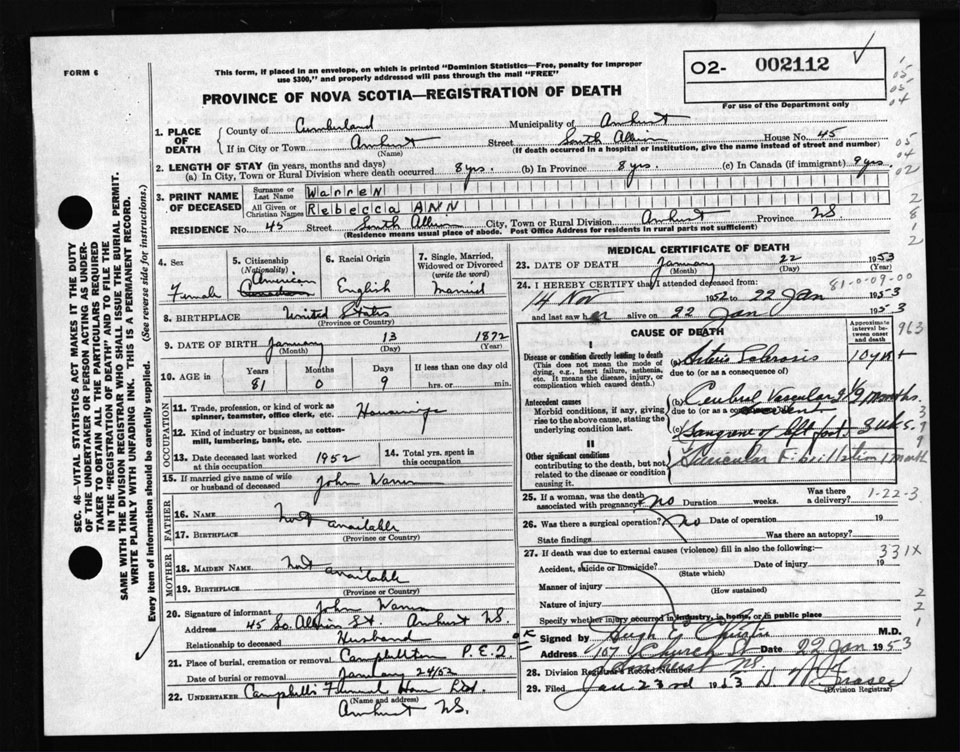 FORM 6
This form, if placed in an envelope, on which is printed "Dominion Statistics—Free, penalty for improper
use $300," and properly addressed will pass through the mail "FREE"
O2- 002112
For use of the Department only
PROVINCE OF NOVA SCOTIA—REGISTRATION OF DEATH
1. PLACE OF DEATH { County of Cumberland Municipality of Amherst
If in City or Town Amherst (Name) Street South Albion House No. 45
(If death occurred in a hospital or institution, give the name instead of street and number)
2. LENGTH OF STAY (in years, months and days)
(a) In City, Town or Rural Division where death occurred 8 yrs. (b) In Province 8 yrs. (c) In Canada (if immigrant) 9 yrs.
3. PRINT NAME OF DECEASED { Surname or Last Name Warren
All Given or Christian Names Rebecca ANN
RESIDENCE No. 45 Street South Albion City, Town or Rural Division Amherst Province NS
(Residence means usual place of abode. Post Office Address for residents in rural parts not sufficient)
4. Sex Female
5. Citizenship (Nationality) American Canadian
6. Racial Origin English
7. Single, Married, Widowed or Divorced (write the word) Married
8. BIRTHPLACE United States
(Province or Country)
9. DATE OF BIRTH January 13 1872
(Month) (Day) (Year)
10. AGE in { Years Months Days If less than one day old
81 0 9 hrs. or min.
OCCUPATION
11. Trade, profession, or kind of work as spinner, teamster, office clerk, etc. Housewife
12. Kind of industry or business, as cotton-mill, lumbering, bank, etc.
13. Date deceased last worked at this occupation 1952
14. Total yrs. spent in this occupation
15. If married give name of wife or husband of deceased John Warren
FATHER
16. Name Not available
17. Birthplace
(Province or Country)
MOTHER
18. Maiden Name Not available
19. Birthplace
(Province or Country)
20. Signature of informant John Warren
Address 45 So. Albion St. Amherst NS.
Relationship to deceased Husband
21. Place of burial, cremation or removal Campbellton P.E.I.
Date of burial or removal January 24/52
22. Undertaker Campbell's Funeral Home Ltd.
(Name and address)
Amherst NS.
MEDICAL CERTIFICATE OF DEATH
23. DATE OF DEATH January 22 1953
(Month) (Day) (Year)
81-0-09-00
24. I HEREBY CERTIFY that I attended deceased from:
14 Nov 1952 to 22 Jan 1953
and last saw her alive on 22 Jan 1953
CAUSE OF DEATH
Approximate interval between onset and death
I
Disease or condition directly leading to death
(This does not mean the mode of dying, e.g., heart failure, asthenia, etc. It means the disease, injury, or complication which caused death.)
(a) Arterio Sclerosis 10 yrs +
due to (or as a consequence of)
Antecedent causes
Morbid conditions, if any, giving rise to the above cause, stating the underlying condition last.
(b) Cerebral Vascular accident months.
due to (or as a consequence of)
(c) Gangrene of left foot 3 wks.
II
Other significant conditions
contributing to the death, but not related to the disease or condition causing it.
Auricular Fibrillation 1 month
25. If a woman, was the death associated with pregnancy? No Duration weeks. Was there a delivery?
1-22-3
26. Was there a surgical operation? No Date of operation 19
State findings Was there an autopsy?
27. If death was due to external causes (violence) fill in also the following:—
331X
Accident, suicide or homicide? Date of injury 19
(State which)
Manner of injury
(How sustained)
Nature of injury
Specify whether injury occurred in industry, in home, or in public place
Signed by Hugh G. Christie M.D.
Address 107 Church St Date 22 Jan 1953
Amherst NS
28. Division Registrar's Record Number
29. Filed Jan 23rd 1953 Fraser
(Division Registrar)
SEC. 46—VITAL STATISTICS ACT MAKES IT THE DUTY
OF THE UNDERTAKER OR PERSON ACTING AS UNDER-
TAKER TO OBTAIN ALL THE PARTICULARS REQUIRED
IN THE "REGISTRATION OF DEATH" AND TO FILE THE
SAME WITH THE DIVISION REGISTRAR WHO SHALL ISSUE THE BURIAL PERMIT.
WRITE PLAINLY WITH UNFADING INK. THIS IS A PERMANENT RECORD.
Every item of information should be carefully supplied. (See reverse side for instructions.)